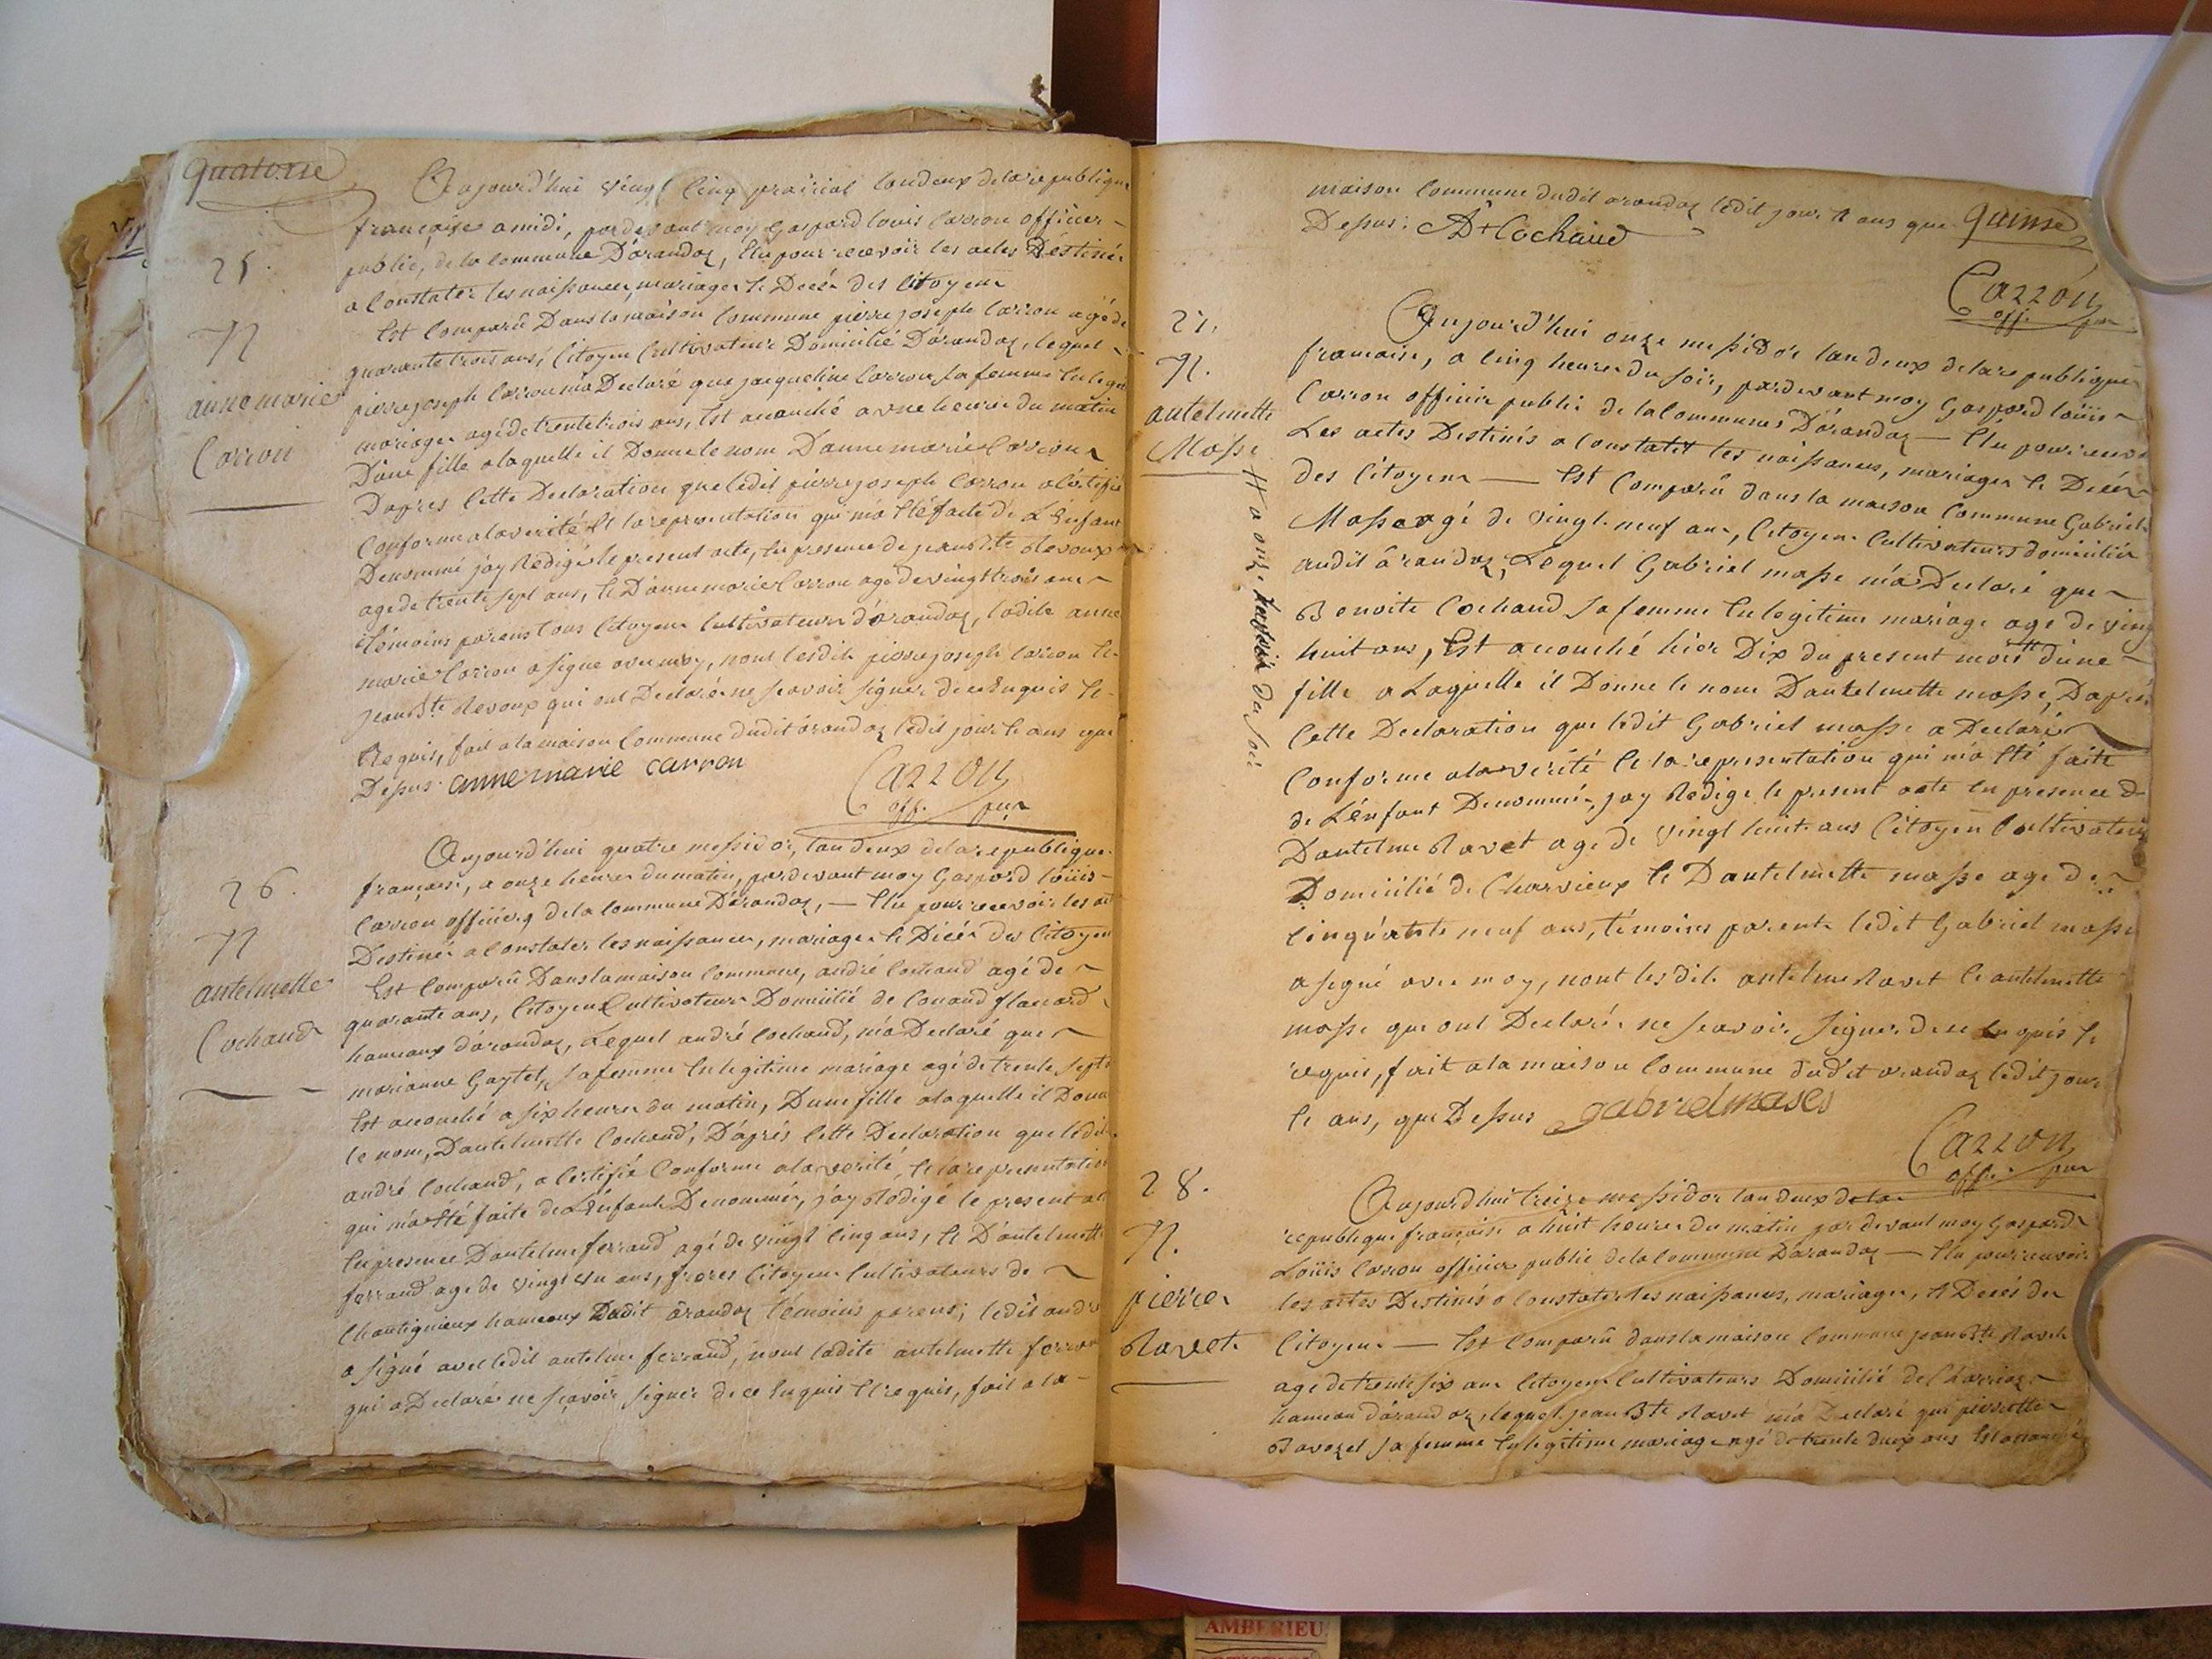 quatorse
Aujourd'hui vingt cinq prairial l'an deux de la republique
française a midi, pardevant moy Gaspard louis Carron officier
public, de la commune D'arandaz, Elu pour recevoir les actes Destinés
a Constater les naissances, mariages & Decés des Citoyens
25.
N
anne marie
Carron
Est Comparû Dans la maison Commune pierre joseph Carron agé de
quarante trois ans, Citoyen Cultivateur Domicilié D'arandaz, lequel
pierre joseph Carron m'a Declaré que jacqueline Carron sa femme En legit
mariage agé de trente trois ans, Est acouché a une heure du matin
D'une fille a laquelle il Donne le nom D'anne marie Carron
D'apres Cette Declaration que ledit pierre joseph Carron a Certifie
Conforme a la verité & la representation qui m'a Eté faite de L'Enfant
Denommé j'ay Redigé le present acte, En presence de jean Bte Ravoux
agé de trente sept ans, & D'anne marie Carron agé de vingt trois ans
témoins parens tous Citoyens Cultivateurs d'arandaz, ladite anne
marie Carron a signe avec moy, nont lesdits pierre joseph Carron &
jean Bte Ravoux qui ont Declaré ne scavoir signer de ce Enquis &
Requis, fait a la maison Commune dudit arandaz ledit jour & ans que
Dessus anne marie carron
Carron
off. pu
26.
N
antelmette
Cochand
Aujourd'hui quatre messidor, l'an deux de la republique
française, a onze heures du matin, pardevant moy Gaspord loüis
Carron officier de la commune D'arandaz, — Elu pour recevoir les act
Destinés a Constater les naissances, mariages & Décés des Citoyens
Est Comparû Dans la maison Commune, andré Cochand agé de
quarante ans, Citoyen Cultivateur Domicilié de Conand
hameaux d'arandaz, Lequel andré Cochand, m'a Declaré que
marianne Gaytet, sa femme En legitime mariage agé de trente sept
Est acouché a six heures du matin, D'une fille a laquelle il Donne
le nom, D'antelmette Cochand, D'aprés Cette Declaration que ledit
andré Cochand, a Certifié Conforme a la verité, & la representation
qui m'a Eté faite de L'Enfant Denommée, j'ay Rédigé le present act
En presence D'antelme ferrand agé de vingt Cinq ans, & D'antelmette
ferrand agé de vingt un ans, freres Citoyens Cultivateurs de
Chantignieux hameaux Dudit arandaz témoins parens; ledit andré
a signé avec ledit antelme ferrand, nont ladite antelmette ferrand
qui a Declaré ne scavoir signer de ce Enquis & requis, fait a la
maison Commune dudit arandaz ledit jour & ans que quinse
Dessus: A+Cochand
Carron
off. pu
27.
N.
antelmette
Masse
Aujourd'hui onze messidor l'an deux de la republique
francaise, a Cinq heures du soir, pardevant moy Gaspord loüis
Carron officier public de la Commune D'arandaz — Elu pour recevoir
Les actes Destinés a Constater les naissances, mariages & Décés
des Citoyens — Est Comparû dans la maison Commune Gabriel
Masse agé de vingt neuf ans, Citoyen Cultivateurs domicilié
audit arandaz, Lequel Gabriel masse m'a Declaré que
Benoite Cochand sa femme En legitime mariage age de vingt
huit ans, Est acouché hier Dix du present mois # d'une
# a onze heures du soir
fille a Laquelle il Donne le nom D'antelmette masse, D'aprés
Cette Declaration que ledit Gabriel masse a Declaré
Conforme a la verité & la representation qui m'a Eté faite
de L'énfant Denommé, j'ay Redigé le present acte En presence de
D'antelme Ravet age de vingt huit ans Citoyen Cultivateur
Domicilié de Charvieux & D'antelmette masse age de
Cinquante neuf ans, témoins parents ledit Gabriel masse
a signé avec moy, nont lesdits antelme Ravet & antelmette
masse qui ont Declaré ne scavoir signer de ce Enquis &
requis, fait a la maison Commune dudit arandaz ledit jour
& ans, que Dessus gabriel mases
Carron
off. pu
28.
N.
pierre
Ravet.
Aujourd'hui treize messidor l'an deux de la
republique française a huit heures du matin pardevant moy Gaspard
Loüis Carron officier public de la commune D'arandaz — Elu pour recevoir
les actes Destinés a Constater les naissances, mariages, & Decés des
Citoyens — Est Comparû dans la maison Commune jean Bte Ravet
age de trente six ans Citoyen Cultivateurs Domicilié de
hameau d'arandaz, lequel jean Bte Ravet m'a Declaré que pierrette
Bavozet sa femme En legitime mariage agé de trente deux ans Est acouché
AMBERIEU